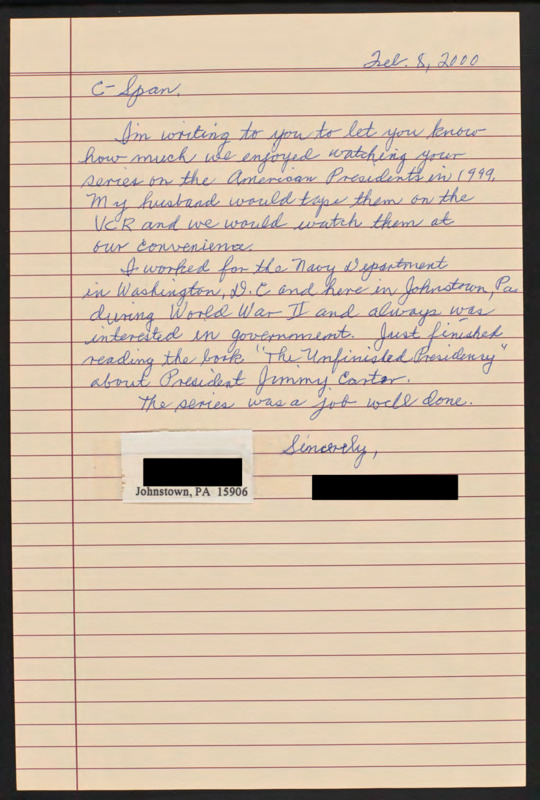 Feb. 8, 2000
C-Span,
I'm writing to you to let you know
how much we enjoyed watching your
series on the American Presidents in 1999.
My husband would tape them on the
VCR and we would watch them at
our convenience.
I worked for the Navy Department
in Washington, D.C and here in Johnstown, Pa
during World War II and always was
interested in government. Just finished
reading the book "The Unfinished Presidency"
about President Jimmy Carter.
The series was a job well done.
Sincerely,
Johnstown, PA 15906